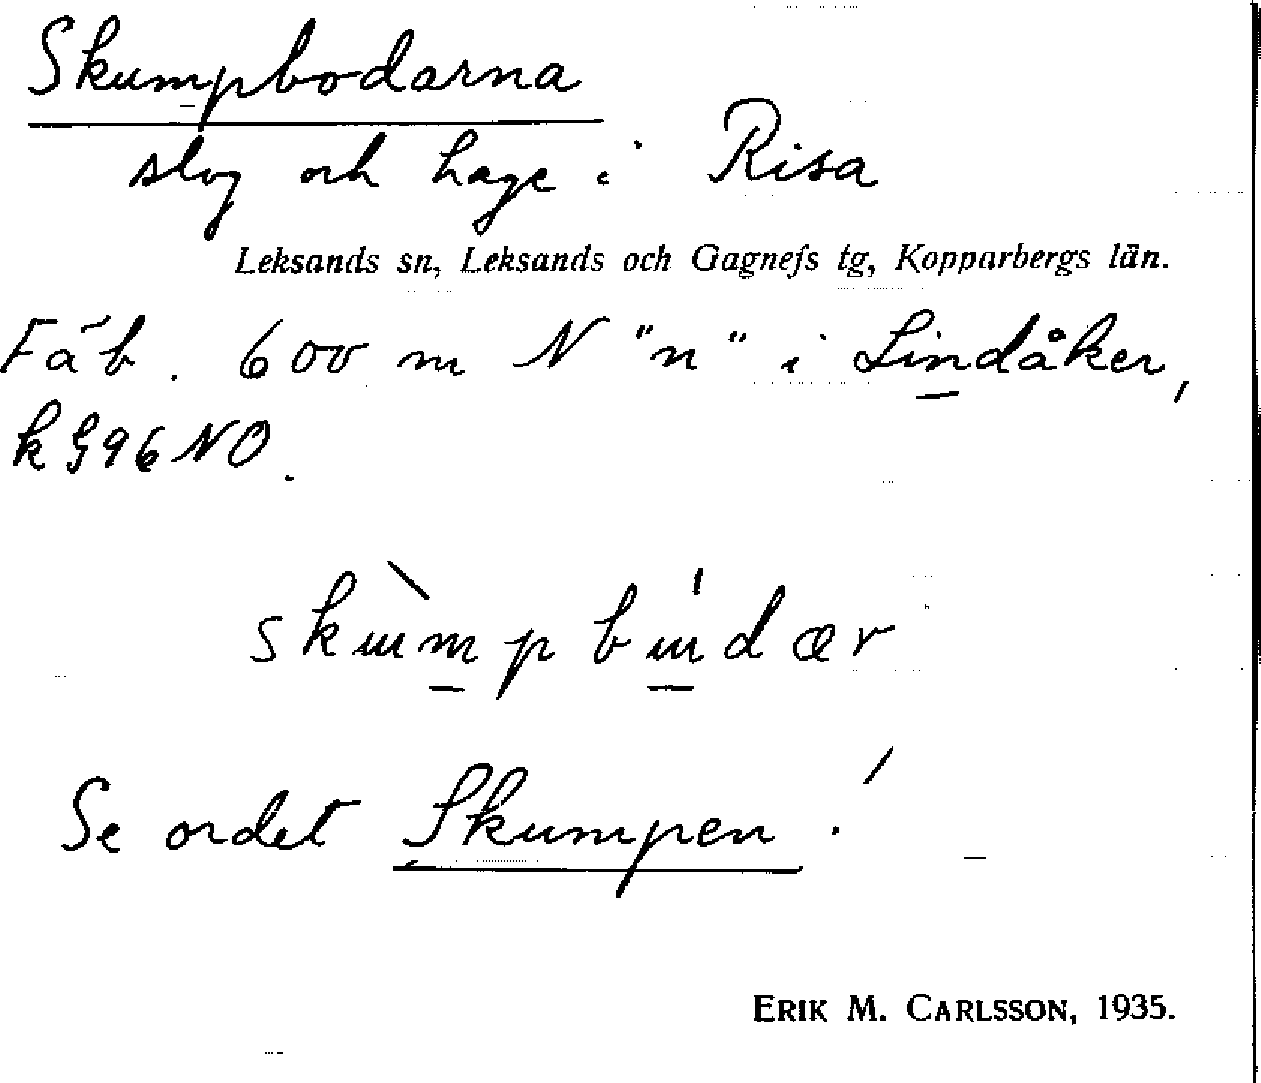 Skumpbodarna
slog och hage i Risa
Leksands sn, Leksands och Gagnefs tg, Kopparbergs län.
Fäb. 600 m N "n" i Lindåker,
k § 96 NO.
skùmpbúdær
Se ordet Skumpen!
ERIK M. CARLSSON, 1935.